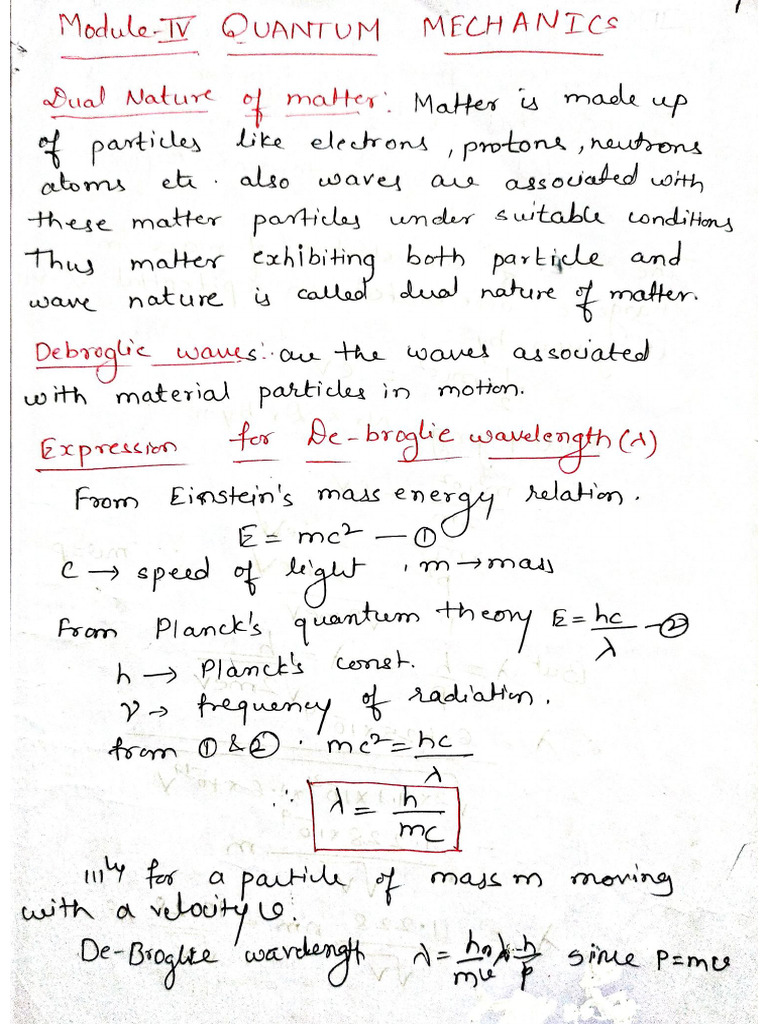 Module-IV QUANTUM MECHANICS
Dual Nature of matter: Matter is made up
of particles like electrons, protons, neutrons
atoms etc. also waves are associated with
these matter particles under suitable conditions
Thus matter exhibiting both particle and
wave nature is called dual nature of matter.
Debroglie waves: are the waves associated
with material particles in motion.
Expression for De-broglie wavelength (λ)
From Einstein's mass energy relation.
E = mc² — ①
c → speed of light, m → mass
From Planck's quantum theory E = hc/λ — ②
h → Planck's const.
ν → frequency of radiation.
from ① & ② . mc² = hc/λ
∴ λ = h/mc
111ly for a particle of mass m moving
with a velocity v.
De-Broglie wavelength λ = h/mv h/p since P=mv